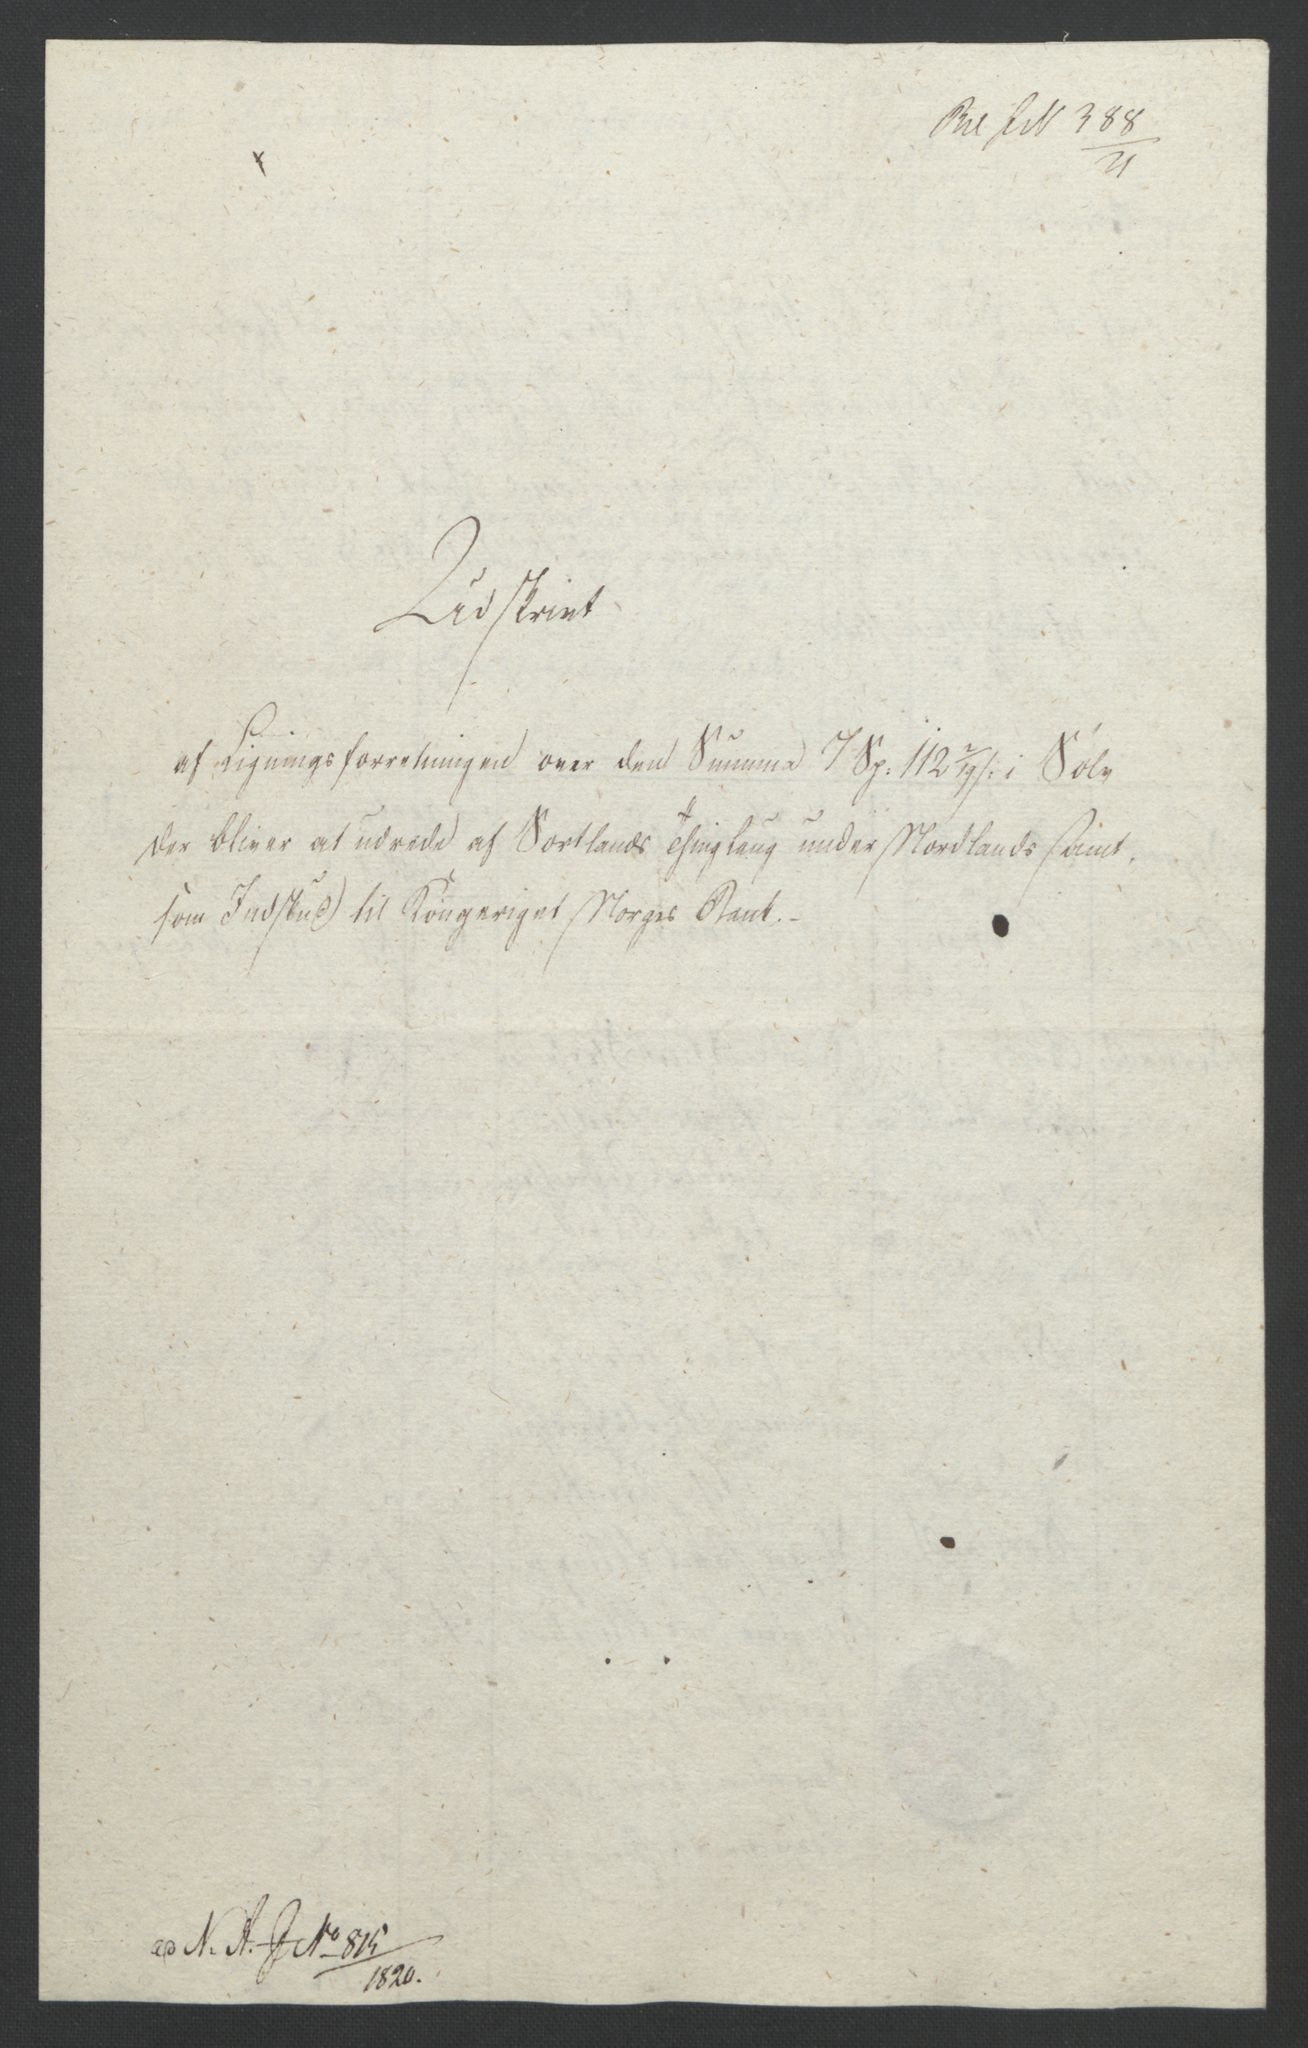 388
21
Udskrivt
af Ligningsforretningen over den Summa 7 Sp: 112 2/19 s: i Sølv
der bliver at udrede af Sortlands Thinglaug under Nordlands Amt,
som Indskud til Kongeriget Norges Bank.-
ad N. A. J No 815
1820.